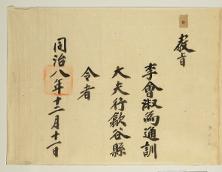 教旨
李會淑為通訓
大夫行歙谷縣
令者
同治八年十二月十一日